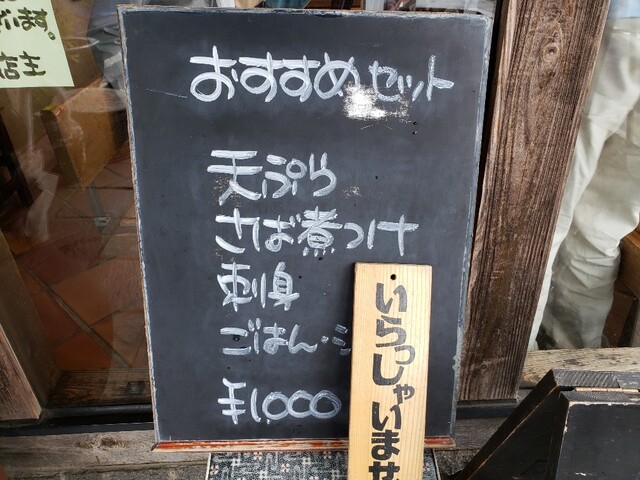 ざいます。
店主
おすすめセット
天ぷら
さば煮つけ
刺身
ごはん・ミ
¥1,000
いらっしゃいませ